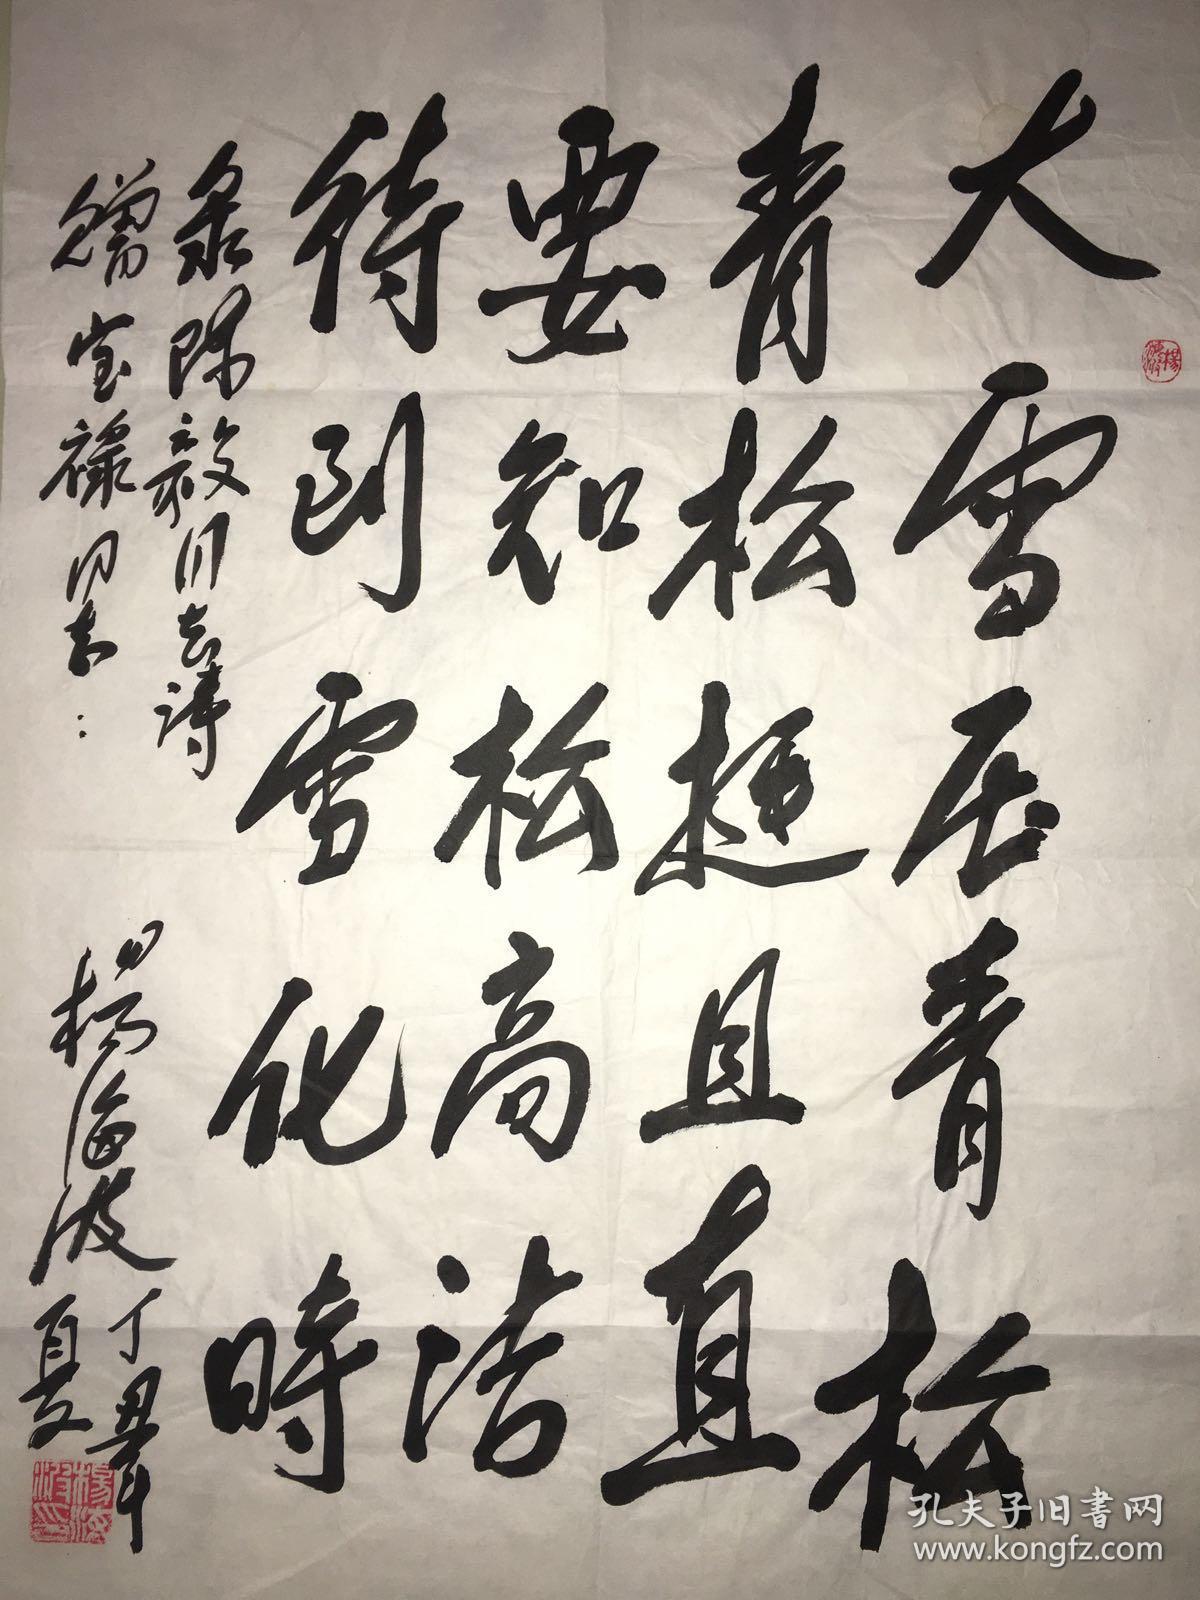 大雪压青松
青松挺且直
要知松高洁
待到雪化時
录陈毅同志诗
赠宝禄同志：
杨海波
丁丑年
夏
楊海波印
孔夫子旧书网
www.kongfz.com